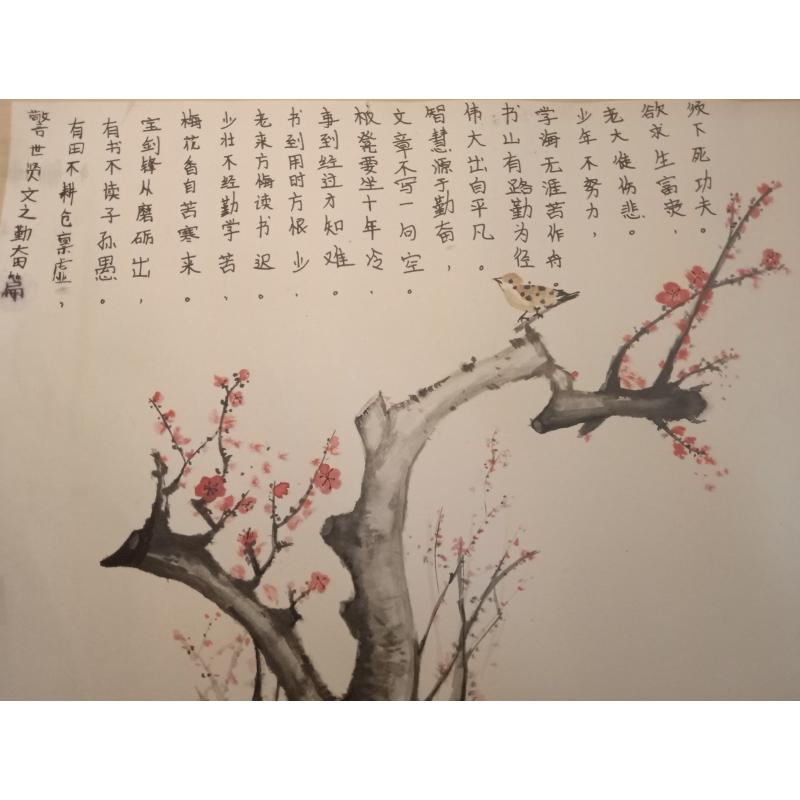 警世贤文之勤奋篇
有田不耕仓禀虚，
有书不读子孙愚。
宝剑锋从磨砺出，
梅花香自苦寒来。
少壮不经勤学苦、
老来方悔读书迟。
书到用时方恨少、
事到经过才知难。
板凳要坐十年冷、
文章不写一句空。
智慧源于勤奋，
伟大出自平凡。
书山有路勤为径
学海无涯苦作舟。
少年不努力，
老大徒伤悲。
欲求生富贵、
须下死功夫。